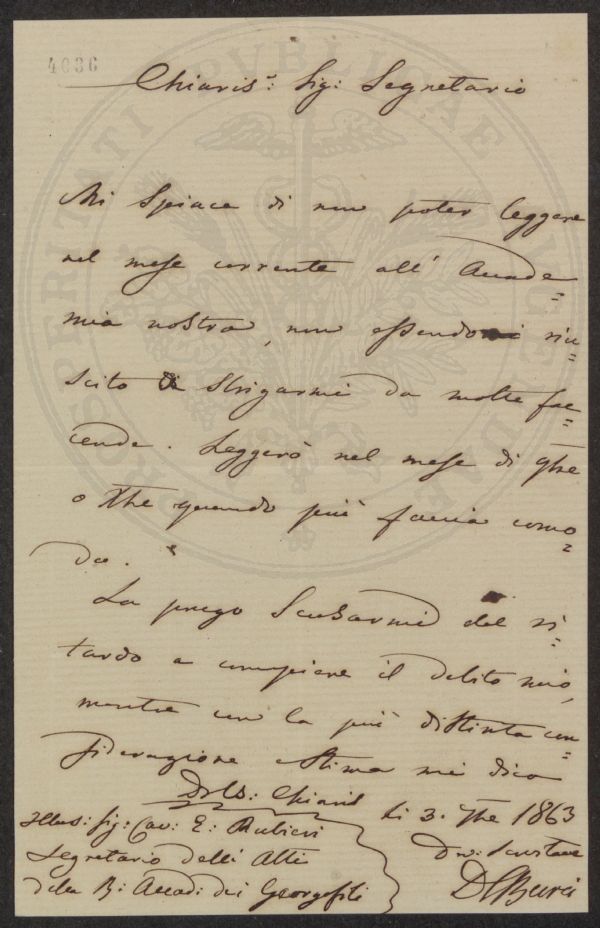 4036
Chiaris.º Sig: Segretario
Mi spiace di non poter leggere
nel mese corrente all' Accade=
mia nostra, non essendomi riu=
scito di sbrigarmi da molte fac=
cende. Leggerò nel mese di 9bre
o Xbre quando più faccia como=
do.
La prego scusarmi del ri=
tardo a compiere il debito mio,
mentre con la più distinta con=
siderazione e stima mi dico
Di Chiaris
li 3. 1863
Illus: Sig: Cav: E: Rubieri
Segretario delli Atti
della R: Accad: dei Georgofili
PROSPERITATI PVBLICAE AVGENDAE